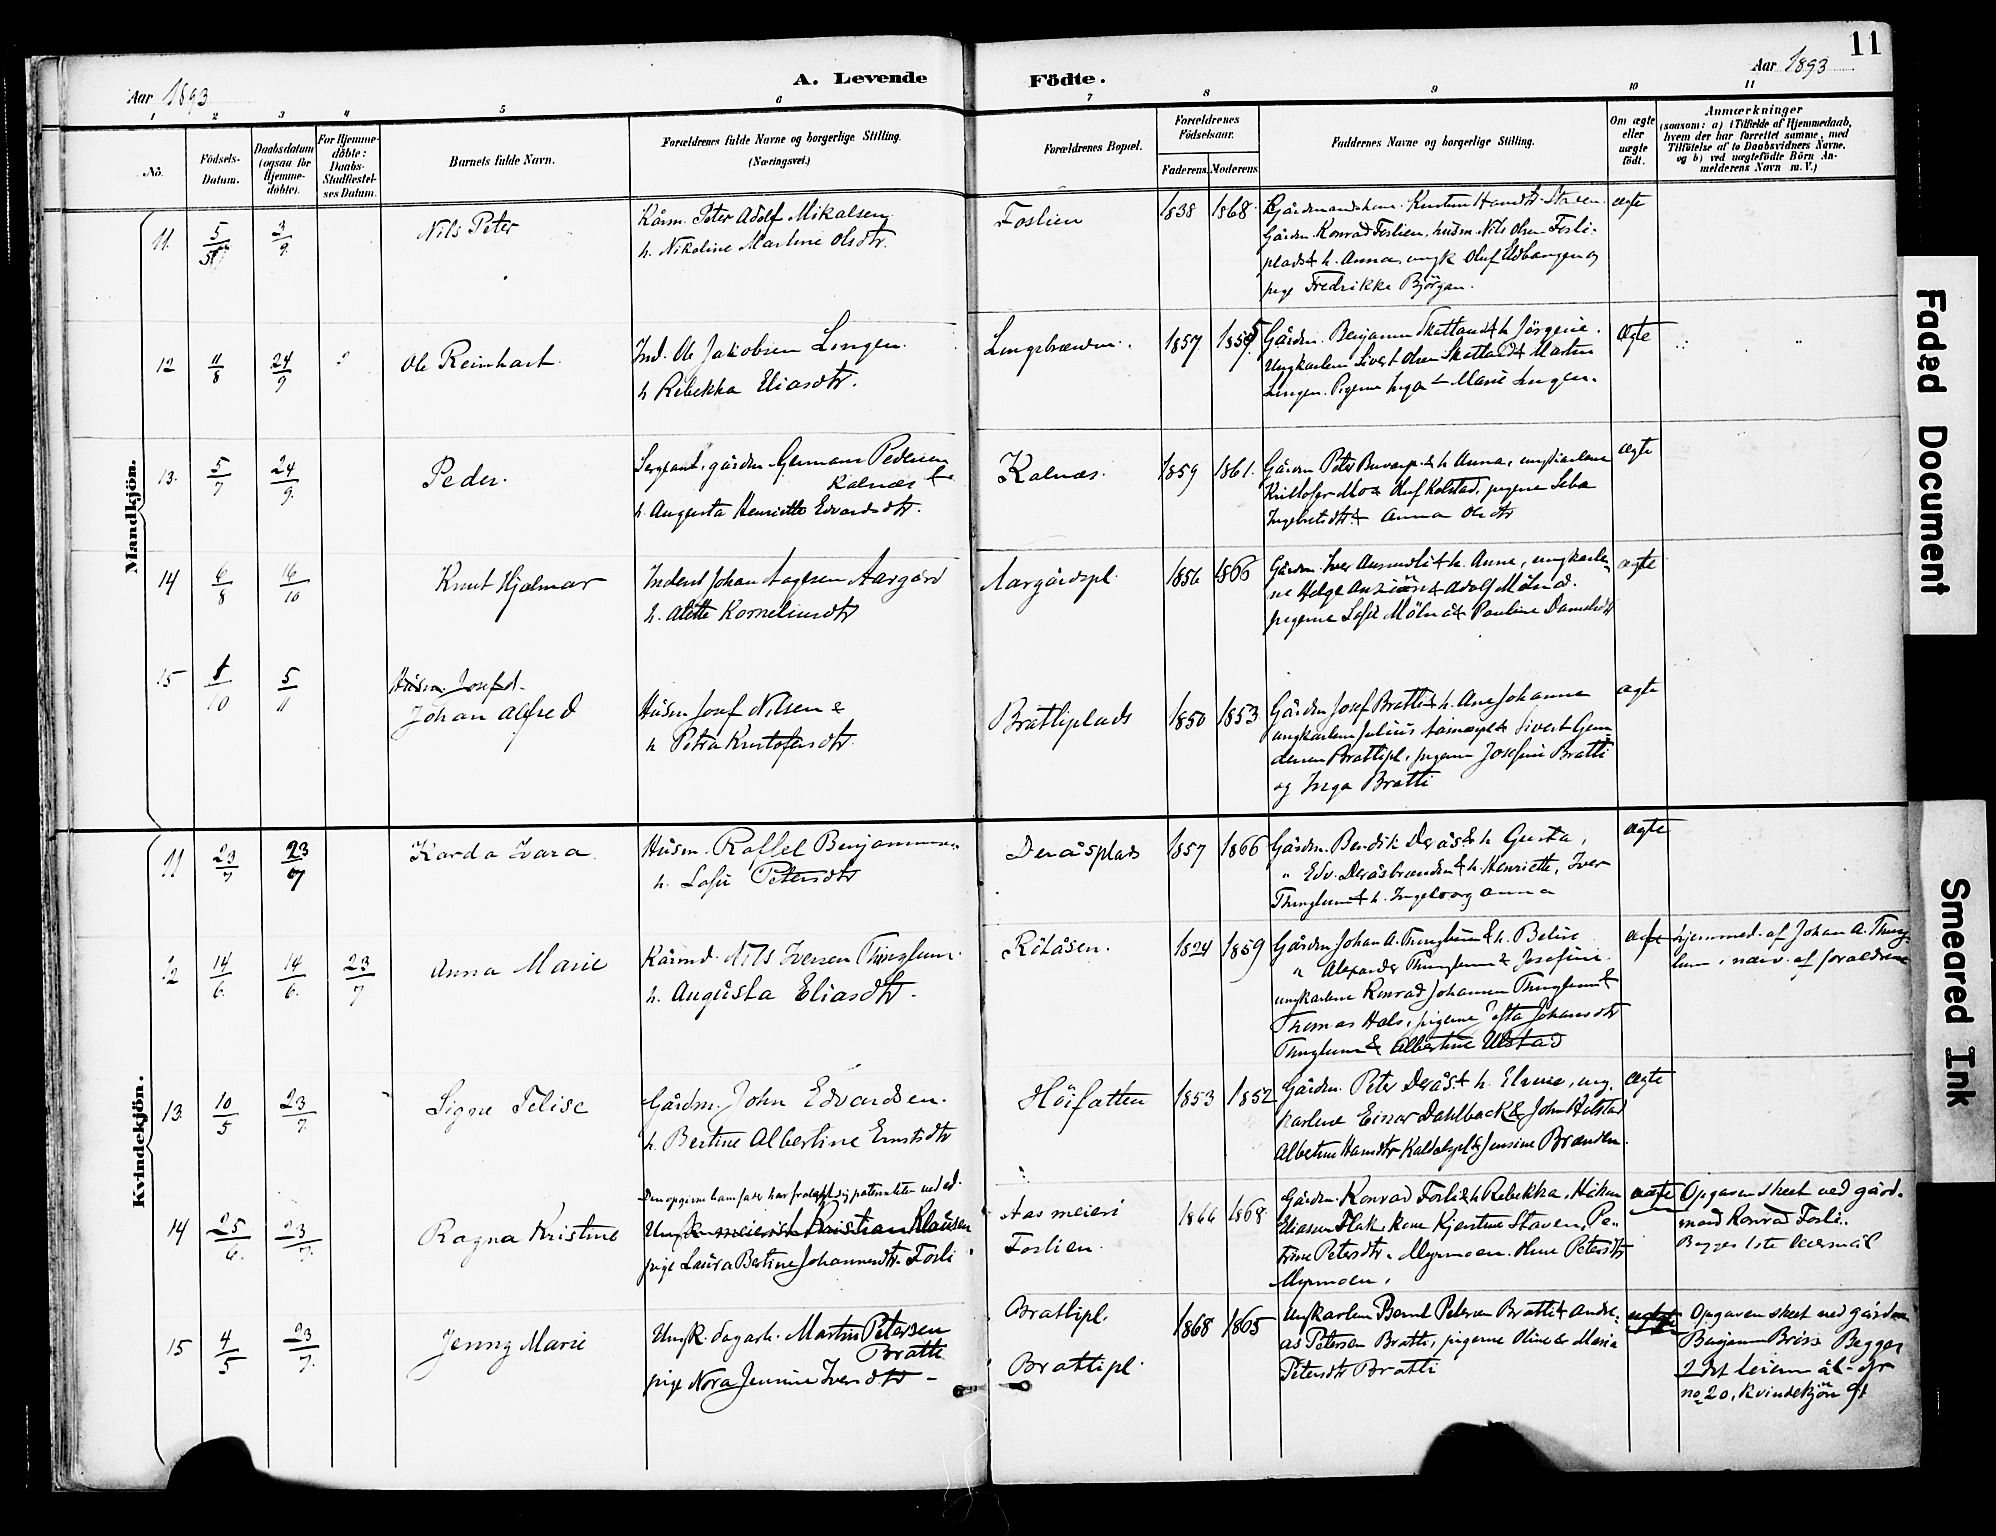 11
Aar 1893
A. Levende Födte.
Aar 1893
1 2 3 4 5 6 7 8 9 10 11
No.
Födsels-Datum.
Daabsdatum (ogsaa for Hjemme-döbte).
For Hjemme-döbte: Daabs-Stadfæstel-ses Datum.
Barnets fulde Navn.
Forældrenes fulde Navne og borgerlige Stilling. (Næringsvei.)
Forældrenes Bopæl.
Forældrenes Födselsaar.
Faderens. Moderens.
Faddernes Navne og borgerlige Stilling.
Om ægte eller uægte födt.
Anmærkninger
(saasom: a) i Tilfælde af Hjemmedaab,
hvem der har forrettet samme, med
Tilföielse af to Daabsvidners Navne,
og b) ved uægtefödte Börn An-
melderens Navn m. V.)
Mandkjön.
11. 5/5 3/9. Nils Peter
Kårm. Peter Adolf Mikalsen
h. Nikoline Martine Olsdtr.
Foslien 1838 1868
Kirstine Hansdtr Staven
Gårdm. Konrad Foslien, husm. Nils Olsen Fosli-
plads & h. Anna, ungk Oluf og
pige Fredrikke Björgan.
ægte
12 11/8 24/9 Ole Reinhart
Ind. Ole Jakobsen Lengen
h. Rebekka Eliasdtr.
1857 1855
Gårdm. Benjamin Skatland & h Jörgine.
Ungkarlene Sivert Olsen Skatland & Martin
Lengen. Pigerne Inga & Marie Lengen.
ægte
13. 5/7 24/9. Peder.
Sergeant, gårdm. Germans Pedersen
Kalnæs &
h. Augusta Henriette Edvardsdtr.
Kalnæs. 1859 1861.
Gårdm Peter & h Anna, ungkarlene
Kristofer Moa Oluf Kolstad, pigerne
Ingebretsdtr & Anna Olsdtr
ægte
14 6/8 16/10 Knut Hjalmar
Inderst Johan Aagesen Aargård
h. Alette Korneliusdtr
Aargårdspl. 1856 1866
Gårdm. Iver & h. Anne, ungkarle-
ne Helge & Adolf Mölnå.
pigerne Sofie Mölnå & Pauline
ægte
15 8/10 5/11
Husm. Josef
Johan Alfred
Husm Josef Nilsen &
h Petra Kristofersdtr.
Bratliplads 1850 1853
Gårdm Josef Bratli & h. Ane Johanna
ungkarlene Julius & Sivert
Bratlipl., pigerne Josefine Bratli
og Inga Bratli
ægte
Kvindekjön.
11 23/7 23/7 Karda Ivara
Husm. Raffel Benjaminsen
h. Sofie Petersdtr
Deråsplads 1857 1866
Gårdm. Bendik Derås & h Gusta,
" Edv. Deråsbrænden & h. Henriette, Iver
Thinglum & h. Ingeborg Anna
ægte
12 14/6. 14/6. 23/7 Anna Marie
Kårmd. Nils Iversen Thinglum.
h. Augusta Eliasdtr.
Röåsen. 1824 1859
Gårdm Johan A. Thinglum & h. Beline
" Alexander Thinglum & Josefine.
ungkarlene Konrad Johannes Thinglum &
Thomas Hals, pigerne Johansdtr
Thinglum & Albertine Ulstad
ægte
hjemmed. af Johan A. Thing-
lum, nærv. af forældrene
13 10/5 23/7. Signe Felise
Gårdm. John Edvardsen.
h. Bertine Albertine Ernstdtr
Höifatten 1853 1852
Gårdm. Peter Derås & h. Eline, ung-
karlene Einar Dahlback & John Holstad
Albertine Hansdtr & Jensine Brænden.
ægte
14 25/6. 23/7. Ragna Kristine
Den opgivne barnefader har fralagt sig paterniteten ved ed.
Ungk. meierist Kristian Klausen
pige Laura Bertine Johannesdtr. Fosli
Aas meieri
Foslien. 1866 1868
Gårdm. Konrad Fosli & h Rebekka, Håkon
Eliasen Flak, kone Kjerstine Staven, Pe-
trine Petersdtr. Myrmoen. Oline Petersdtr
Myrmoen.
uægte
Opgaven skeet ved gård-
mand Konrad Fosli.
Begges 1ste leiermål
15 4/5 23/7. Jenny Marie
Ungk. dagarb. Martin Petersen
Bratli
pige Nora Jensine Iversdtr -
Bratlipl.
Bratlipl 1868 1865
Ungkarlene Bernt Petersen Bratli & Andre-
as Petersen Bratli, pigerne Oline & Maria
Petersdtr Bratli
uægte
Opgaven skeet ved gårdm
Benjamin Begges
2det leiermål - cfr
no 20, kvindekjön 91
Faded Document
Smeared Ink